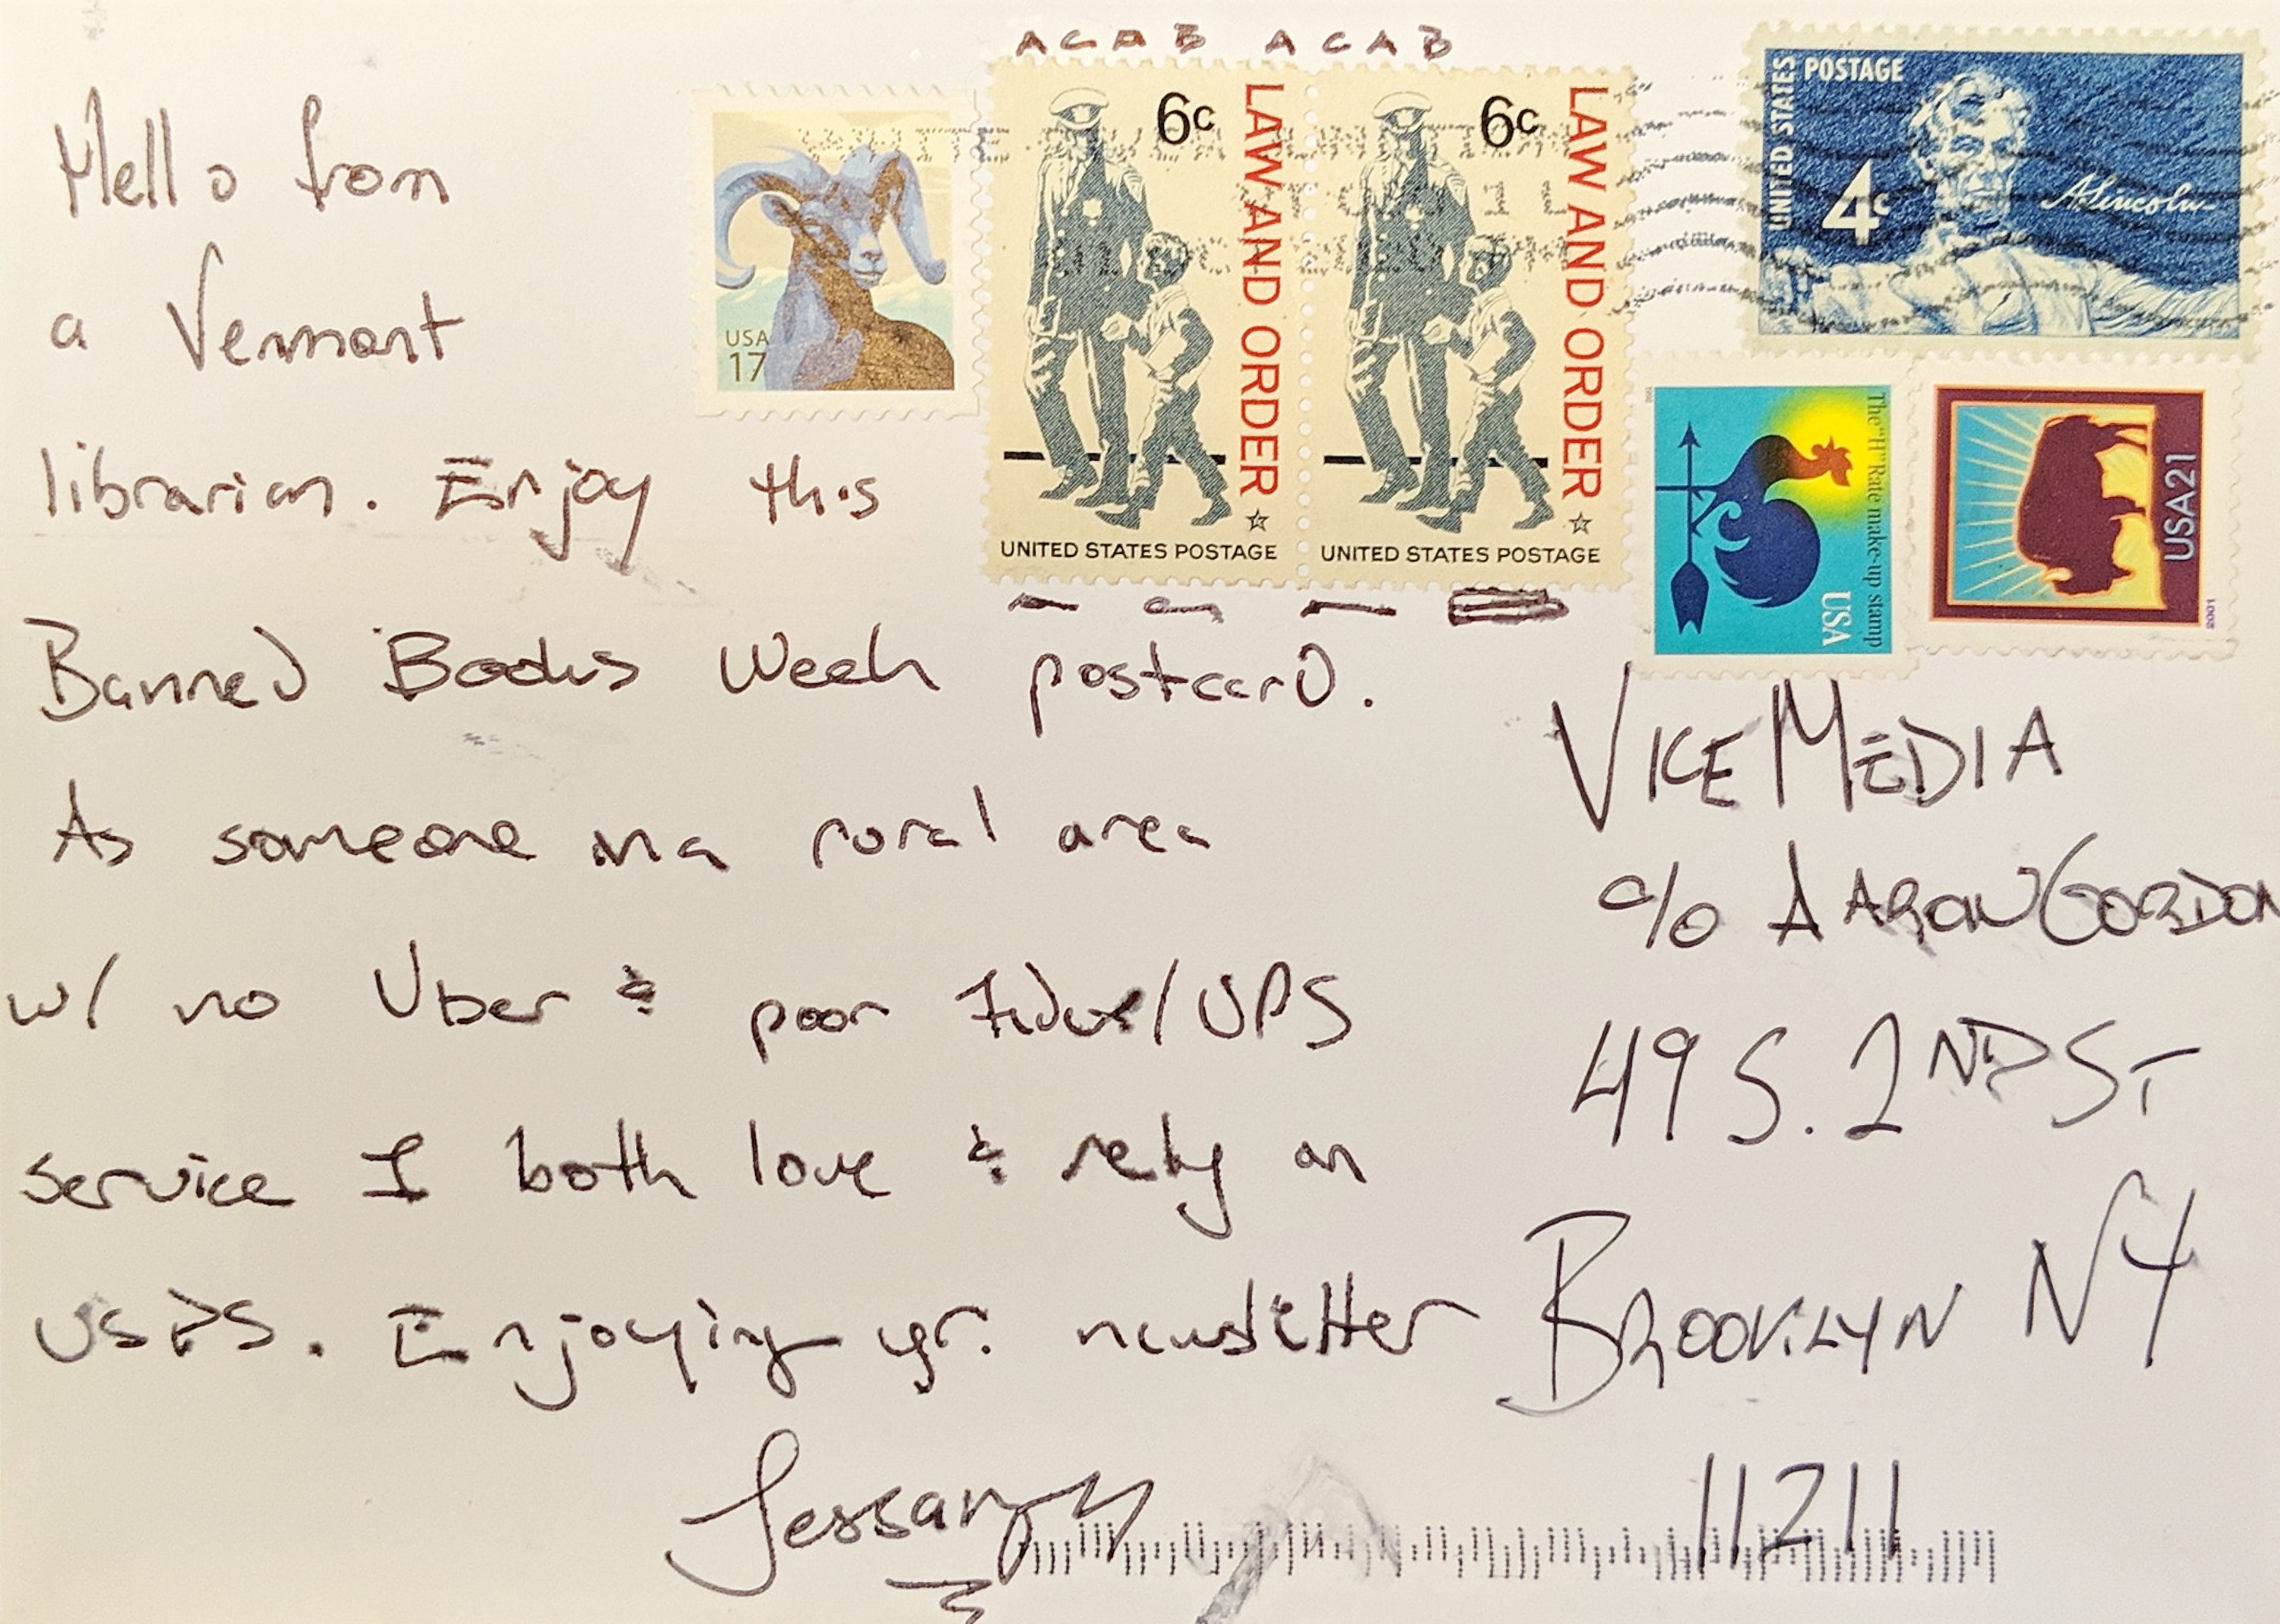 ACAB ACAB
Hello from
a Vermont
librarian. Enjoy this
Banned Books Week postcard.
As someone in a rural area
w/ no Uber & poor Fedex/UPS
service I both love & rely on
USPS. Enjoying yr. newsletter
Jessamyn
USA
17
6c
LAW AND ORDER
UNITED STATES POSTAGE
6c
LAW AND ORDER
UNITED STATES POSTAGE
UNITED STATES POSTAGE
4c
A. Lincoln
The "H" Rate make-up stamp
USA
USA21
2001
VICE MEDIA
c/o AARON GORDON
49 S. 2ND ST
BROOKLYN NY
11211